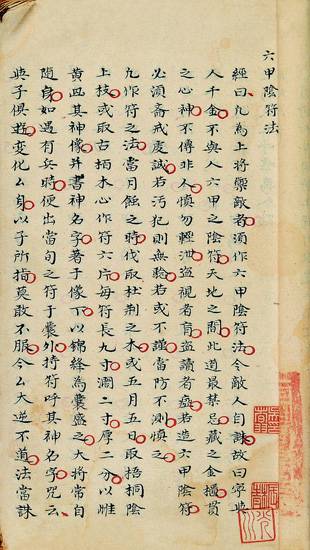 六甲陰符法
經曰凡為上將禦敵者須作六甲陰符法令敵人自誅故曰寧與
人千金不與人六甲之陰符天地之間此道最禁忌藏之金匱貫
之心神不傳非人慎勿輕泄盜視者盲盜讀者癡若造六甲陰符
必須斎戒虔誠若污犯則無驗若或不謹當防不測慎之
凡作符之法當月蝕之時伐取杜荆之木或五月五日取梧桐陰
上枝或取古栢木心作符六片每符長九寸濶二寸厚二分以雌
黃畫其神像并書神名字著于像下以錦絳為囊盛之大將常自
隨身如遇有兵時便出當旬之符于囊外持符呼其神名字咒云
與子俱遊變化么身以子所指莫敢不服今么大逆不道法當誅